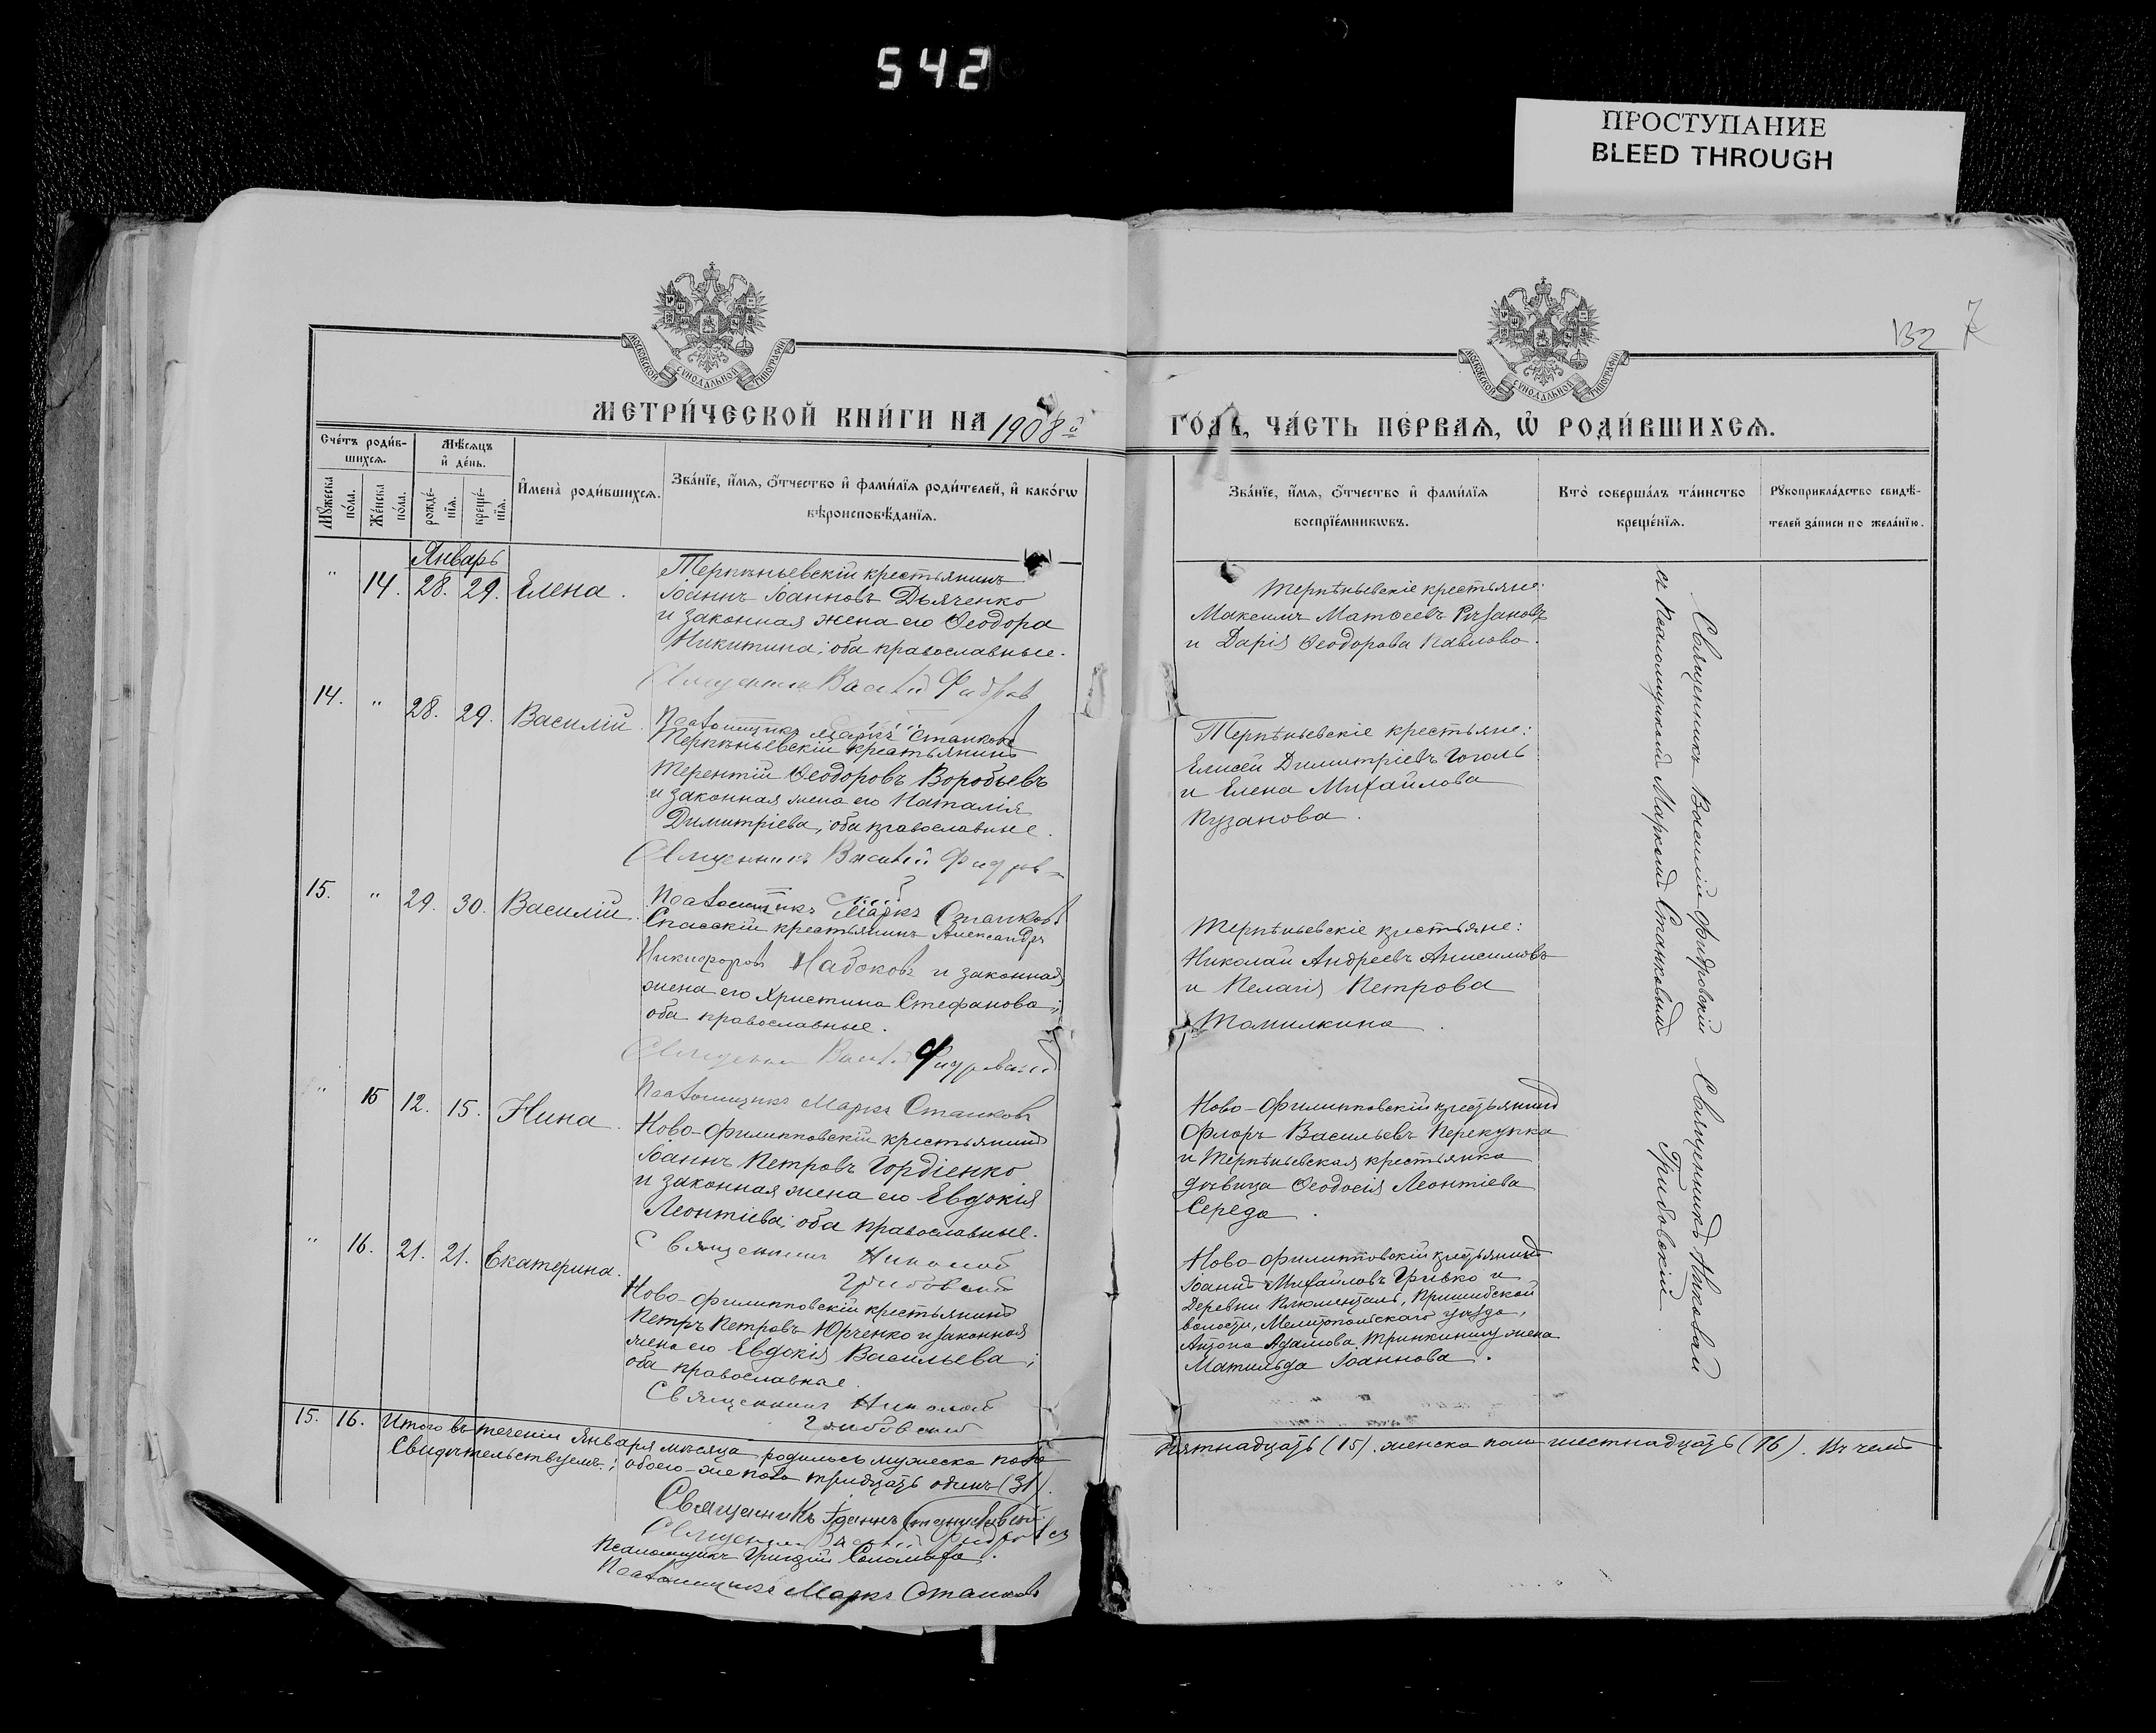 542
ПРОСТУПАНИЕ
BLEED THROUGH
132 7
МОСКОВСКОЙ СѴНОДАЛЬНОЙ ТИПОГРАФІИ
МОСКОВСКОЙ СѴНОДАЛЬНОЙ ТИПОГРАФІИ
МЕТРИ́ЧЕСКОЙ КНИ́ГИ НА 1908й
ГО́ДЪ, ЧА́СТЬ ПЕ́РВАѦ, Ѡ҆ РОДИ́ВШИХСѦ.
Сче́тъ роди́в-
шихсѧ.
Мꙋ́жеска по́ла.
Же́нска по́ла.
Мѣ́сѧцъ
и҆ де́нь.
рожде́-
нїѧ.
креще́-
нїѧ.
И҆мена̀ роди́вшихсѧ.
Зва́нїе, и҆́мѧ, ѻ҆́тчество и҆ фами́лїѧ роди́телей, и҆ како́гѡ
вѣроисповѣ́данїѧ.
Зва́нїе, и҆́мѧ, ѻ҆́тчество и҆ фами́лїѧ
воспрїе́мникѡвъ.
Кто̀ соверша́лъ та́инство
креще́нїѧ.
Рꙋкоприкла́дство свидѣ́-
телей за́писи по жела́нїю.
Январь
" 14. 28. 29. Елена.
Терпѣньевскій крестьянинъ
Іоаннъ Іоанновъ Дьяченко
и законная жена его Ѳеодора
Никитина; оба православные.
Священникъ Василій
Терпѣньевскіе крестьяне:
Максимъ Матѳеевъ Рязановъ
и Дарія Ѳеодорова Павлова.
14. " 28. 29. Василій.
Псаломщикъ Маркъ Станковъ
Терпѣньевскій крестьянинъ
Терентій Ѳеодоровъ Воробьевъ
и законная жена его Наталія
Димитріева; оба православные.
Священникъ Василій
Терпѣньевскіе крестьяне:
Елисей Димитріевъ Гоголь
и Елена Михайлова
Пузанова.
15. " 29. 30. Василій.
Псаломщикъ Маркъ Станковъ
Спасскій крестьянинъ Александръ
Никифоровъ Набоковъ и законная
жена его Христина Стефанова;
оба православные.
Священникъ Василій Фидровскій
Терпѣньевскіе крестьяне:
Николай Андреевъ Анисимовъ
и Пелагія Петрова
Томилкина.
" 15 12. 15. Нина.
Псаломщикъ Маркъ Станковъ
Ново-Филипповскій крестьянинъ
Іоаннъ Петровъ Гордіенко
и законная жена его Евдокія
Леонтіева; оба православные.
Священникъ Николай
Грибовскій
Ново-Филипповскій крестьянинъ
Флоръ Васильевъ Перекупка
и Терпѣньевская крестьянка
дѣвица Ѳеодосія Леонтіева
Середа.
" 16. 21. 21. Екатерина.
Ново-Филипповскій крестьянинъ
Петръ Петровъ Юрченко и законная
жена его Евдокія Васильева;
оба православные.
Священникъ Николай
Грибовскій
Ново-Филипповскій крестьянинъ
Іоаннъ Михайловъ Гривко и
Деревни Блюменталь, Пришибской
волости, Мелитопольскаго уѣзда,
Антона Адамова жена
Матильда Іоаннова.
Священникъ Василій Фидровскій
съ Псаломщикомъ Маркомъ Станковымъ
Священникъ Николай
Грибовскій.
15. 16. Итого въ теченіи Января мѣсяца родилось мужеска пола
Пятнадцать (15). женска пола шестнадцать (16). Въ чемъ
Свидѣтельствуемъ; обоего-же пола тридцать одинъ (31).
Священникъ Іоаннъ
Священникъ Василій
Псаломщикъ Григорій Соломаха.
Псаломщикъ Маркъ Станковъ